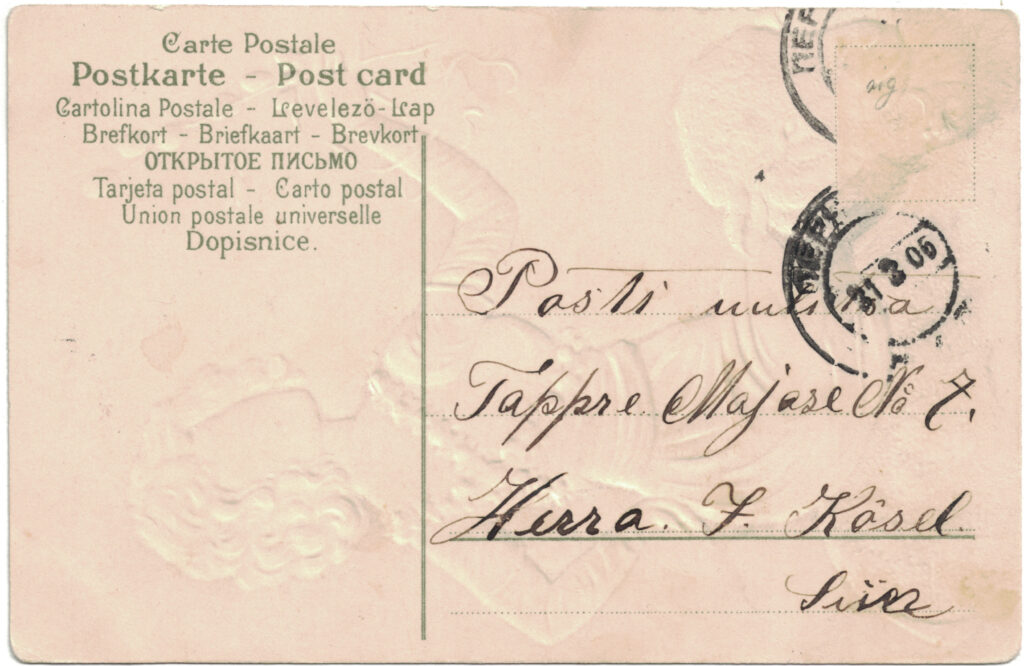 Carte Postale
Postkarte - Post card
Cartolina Postale - Levelezö-Lap
Brefkort - Briefkaart - Brevkort
ОТКРЫТОЕ ПИСЬМО
Tarjeta postal - Carto postal
Union postale universelle
Dopisnice.
ПЕР
ПЕР
21 2 06
Posti
Tappre Majase No 7.
Herra. J. Kösel.
Siin